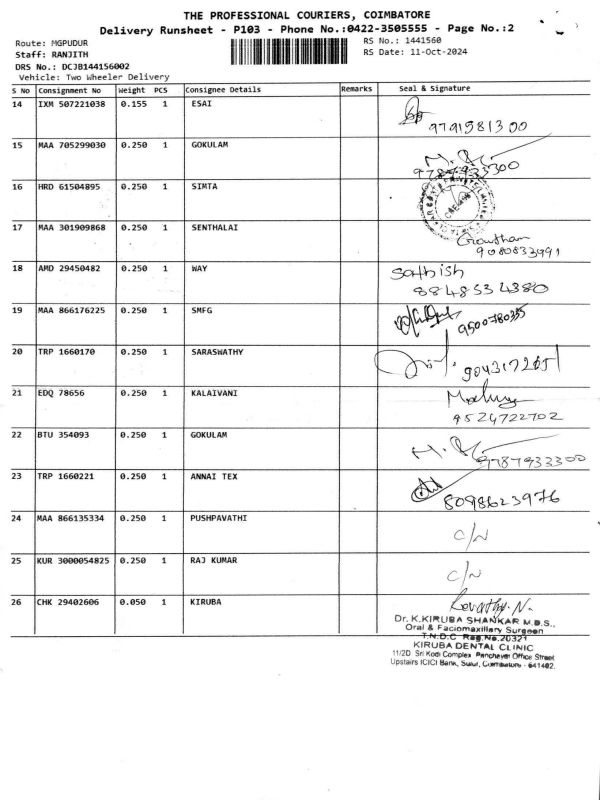 THE PROFESSIONAL COURIERS, COIMBATORE
Delivery Runsheet - P103 - Phone No.:0422-3505555 - Page No.:2
Route: MGPUDUR RS No.: 1441560
Staff: RANJITH RS Date: 11-Oct-2024
DRS No.: DCJB144156002
Vehicle: Two Wheeler Delivery
S No Consignment No Weight PCS Consignee Details Remarks Seal & Signature
14 IXM 507221038 0.155 1 ESAI
9791581300
15 MAA 705299030 0.250 1 GOKULAM
16 HRD 61504895 0.250 1 SIMTA
17 MAA 301909868 0.250 1 SENTHALAI Gowtham
9080833991
18 AMD 29450482 0.250 1 WAY Sathish
8848534380
19 MAA 866176225 0.250 1 SMFG
9500780335
20 TRP 1660170 0.250 1 SARASWATHY
21 EDQ 78656 0.250 1 KALAIVANI
9524722702
22 BTU 354093 0.250 1 GOKULAM
9787933300
23 TRP 1660221 0.250 1 ANNAI TEX
8098623976
24 MAA 866135334 0.250 1 PUSHPAVATHI C/N
25 KUR 3000054825 0.250 1 RAJ KUMAR C/N
26 CHK 29402606 0.050 1 KIRUBA Revathy.N.
Dr. K.KIRUBA SHANKAR M.D.S.,
Oral & Faciomaxillary Surgeon
T.N.D.C Reg.No.20321
KIRUBA DENTAL CLINIC
11/2D. Sri Kodi Complex Panchayat Office Street
Upstairs ICICI Bank, Sulur, Coimbatore - 641402.